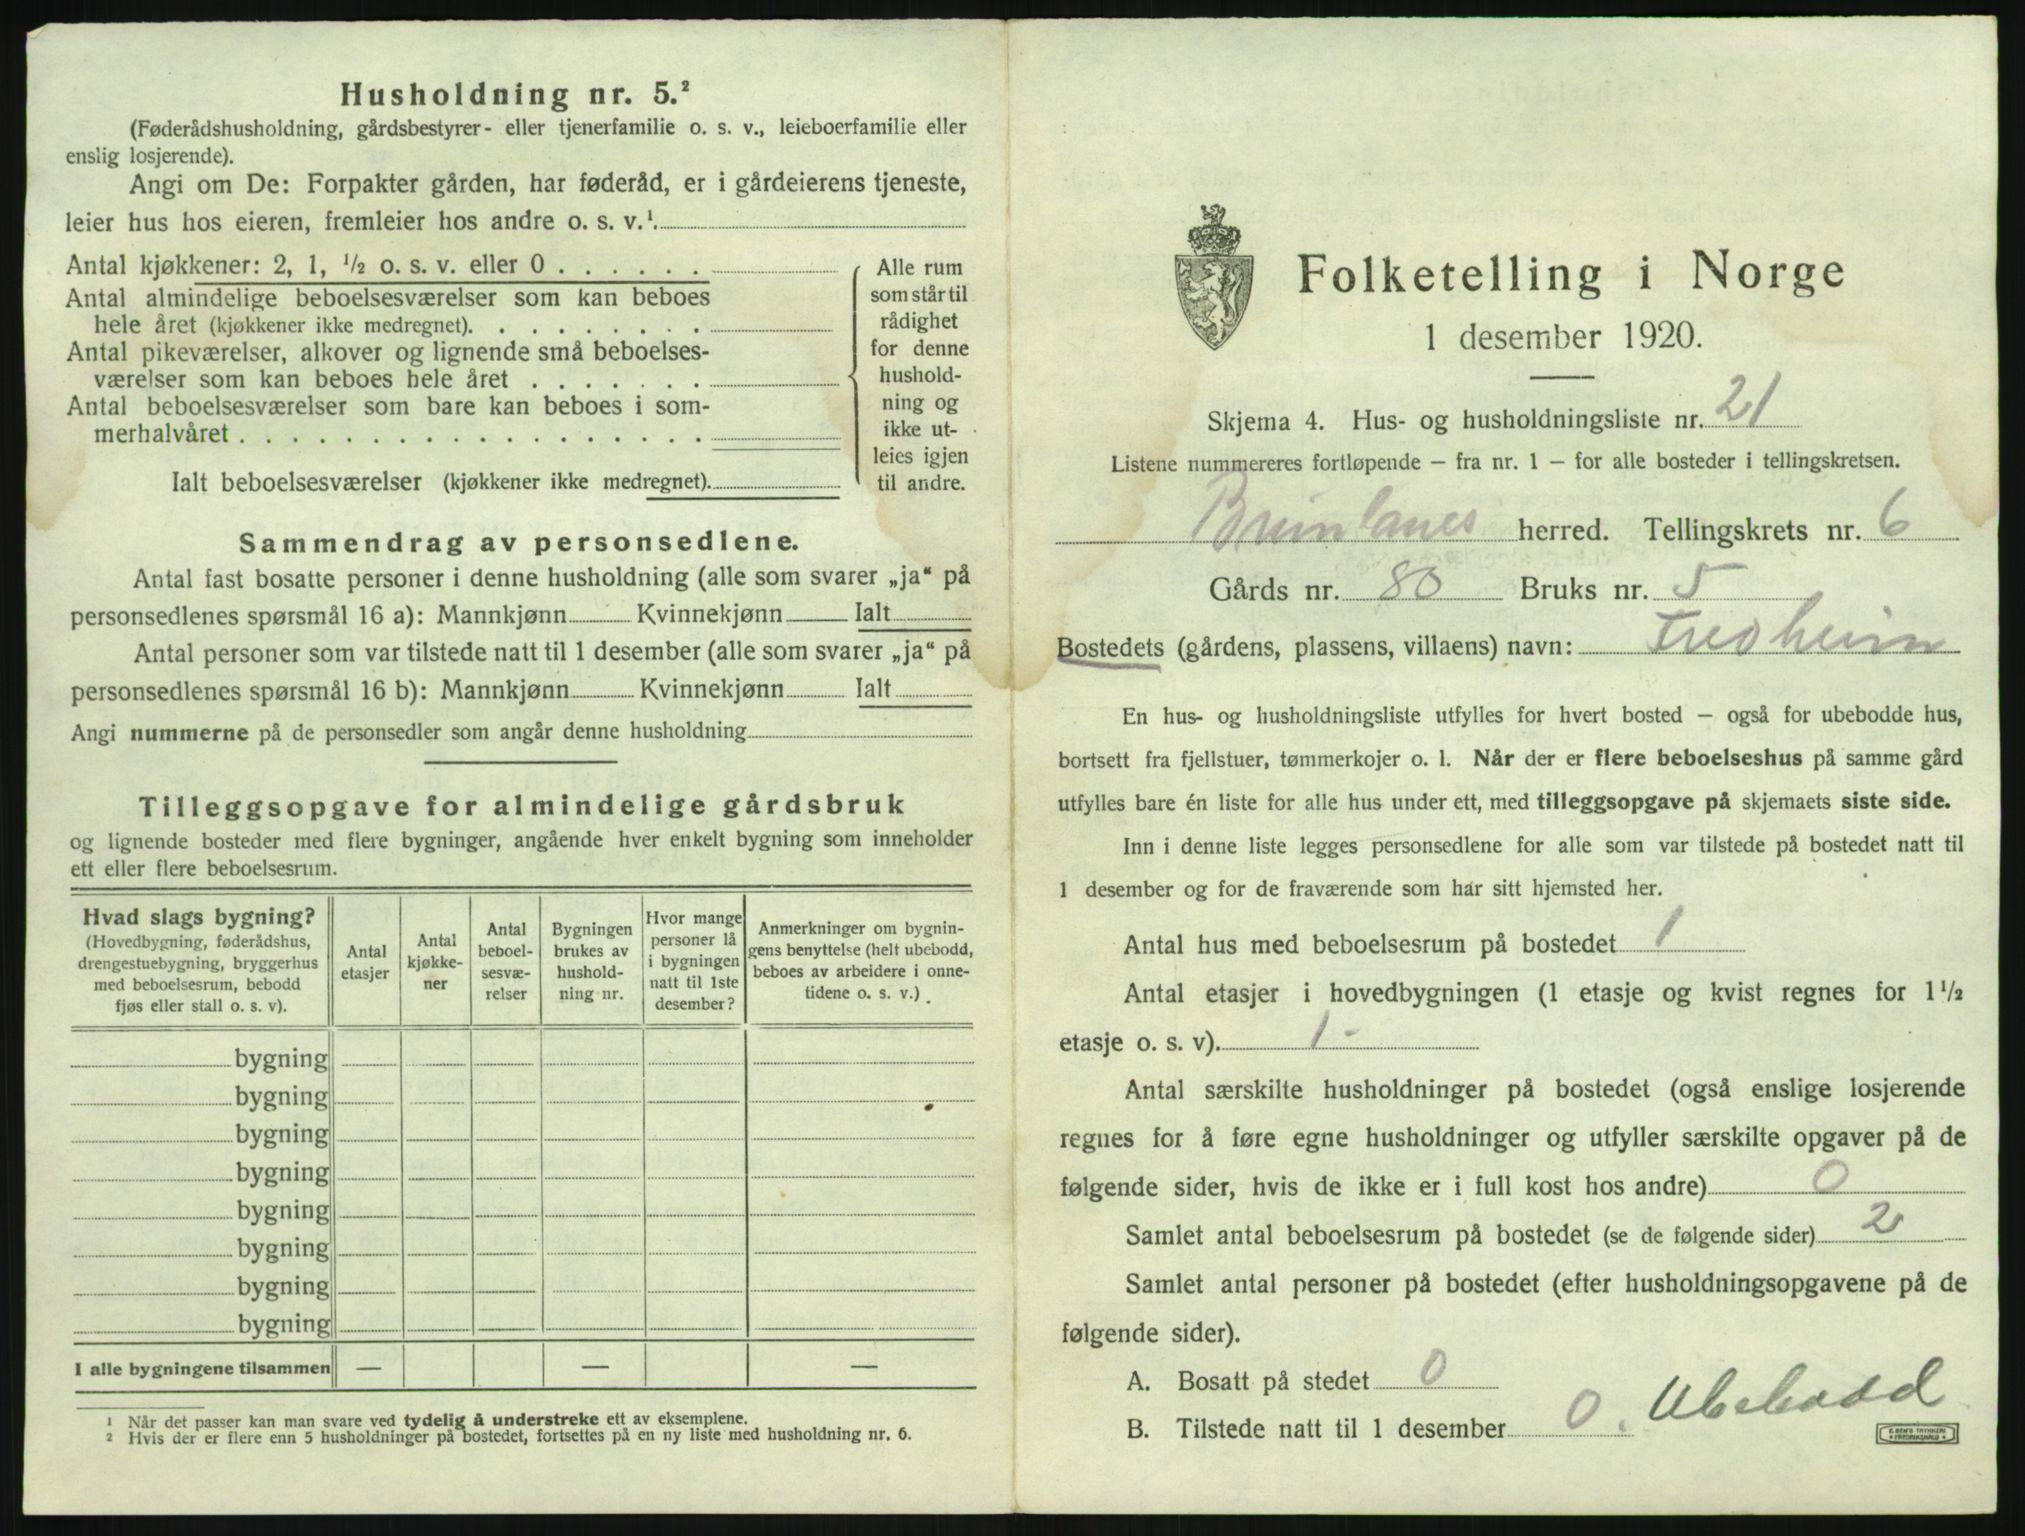 Husholdning nr. 5.²
(Føderådshusholdning, gårdsbestyrer- eller tjenerfamilie o. s. v., leieboerfamilie eller
enslig losjerende).
Angi om De: Forpakter gården, har føderåd, er i gårdeierens tjeneste,
leier hus hos eieren, fremleier hos andre o. s. v.¹.
Antal kjøkkener: 2, 1, ½ o. s. v. eller 0 . . . . . .
Antal almindelige beboelsesværelser som kan beboes
hele året (kjøkkener ikke medregnet). . . . . . . . .
Antal pikeværelser, alkover og lignende små beboelses-
værelser som kan beboes hele året . . . . . . .
Antal beboelsesværelser som bare kan beboes i som-
merhalvåret . . . . . . . . . . . . . . . . . .
Ialt beboelsesværelser (kjøkkener ikke medregnet).
Alle rum
som står til
rådighet
for denne
hushold-
ning og
ikke ut-
leies igjen
til andre.
Sammendrag av personsedlene.
Antal fast bosatte personer i denne husholdning (alle som svarer „ja“ på
personsedlenes spørsmål 16 a): Mannkjønn Kvinnekjønn Ialt
Antal personer som var tilstede natt til 1 desember (alle som svarer „ja“ på
personsedlenes spørsmål 16 b): Mannkjønn Kvinnekjønn Ialt
Angi nummerne på de personsedler som angår denne husholdning
Tilleggsopgave for almindelige gårdsbruk
og lignende bosteder med flere bygninger, angående hver enkelt bygning som inneholder
ett eller flere beboelsesrum.
Hvad slags bygning?
(Hovedbygning, føderådshus,
drengestuebygning, bryggerhus
med beboelsesrum, bebodd
fjøs eller stall o. s. v).
Antal
etasjer
Antal
kjøkke-
ner
Antal
beboel-
sesvæ-
relser
Bygningen
brukes av
hushold-
ning nr.
Hvor mange
personer lå
i bygningen
natt til 1ste
desember?
Anmerkninger om bygnin-
gens benyttelse (helt ubebodd,
beboes av arbeidere i onne-
tidene o. s. v.)
bygning
bygning
bygning
bygning
bygning
bygning
bygning
bygning
I alle bygningene tilsammen — — —
¹ Når det passer kan man svare ved tydelig å understreke ett av eksemplene.
² Hvis der er flere enn 5 husholdninger på bostedet, fortsettes på en ny liste med husholdning nr. 6.
Folketelling i Norge
1 desember 1920.
Skjema 4. Hus- og husholdningsliste nr. 21
Listene nummereres fortløpende – fra nr. 1 – for alle bosteder i tellingskretsen.
Brunlanes herred. Tellingskrets nr. 6
Gårds nr. 80 Bruks nr. 5
Bostedets (gårdens, plassens, villaens) navn: Fredheim
En hus- og husholdningsliste utfylles for hvert bosted – også for ubebodde hus,
bortsett fra fjellstuer, tømmerkojer o. l. Når der er flere beboelseshus på samme gård
utfylles bare én liste for alle hus under ett, med tilleggsopgave på skjemaets siste side.
Inn i denne liste legges personsedlene for alle som var tilstede på bostedet natt til
1 desember og for de fraværende som har sitt hjemsted her.
Antal hus med beboelsesrum på bostedet 1
Antal etasjer i hovedbygningen (1 etasje og kvist regnes for 1½
etasje o. s. v). 1 -
Antal særskilte husholdninger på bostedet (også enslige losjerende
regnes for å føre egne husholdninger og utfyller særskilte opgaver på de
følgende sider, hvis de ikke er i full kost hos andre) 0
Samlet antal beboelsesrum på bostedet (se de følgende sider) 2
Samlet antal personer på bostedet (efter husholdningsopgavene på de
følgende sider).
A. Bosatt på stedet 0
B. Tilstede natt til 1 desember 0. Ubebodd